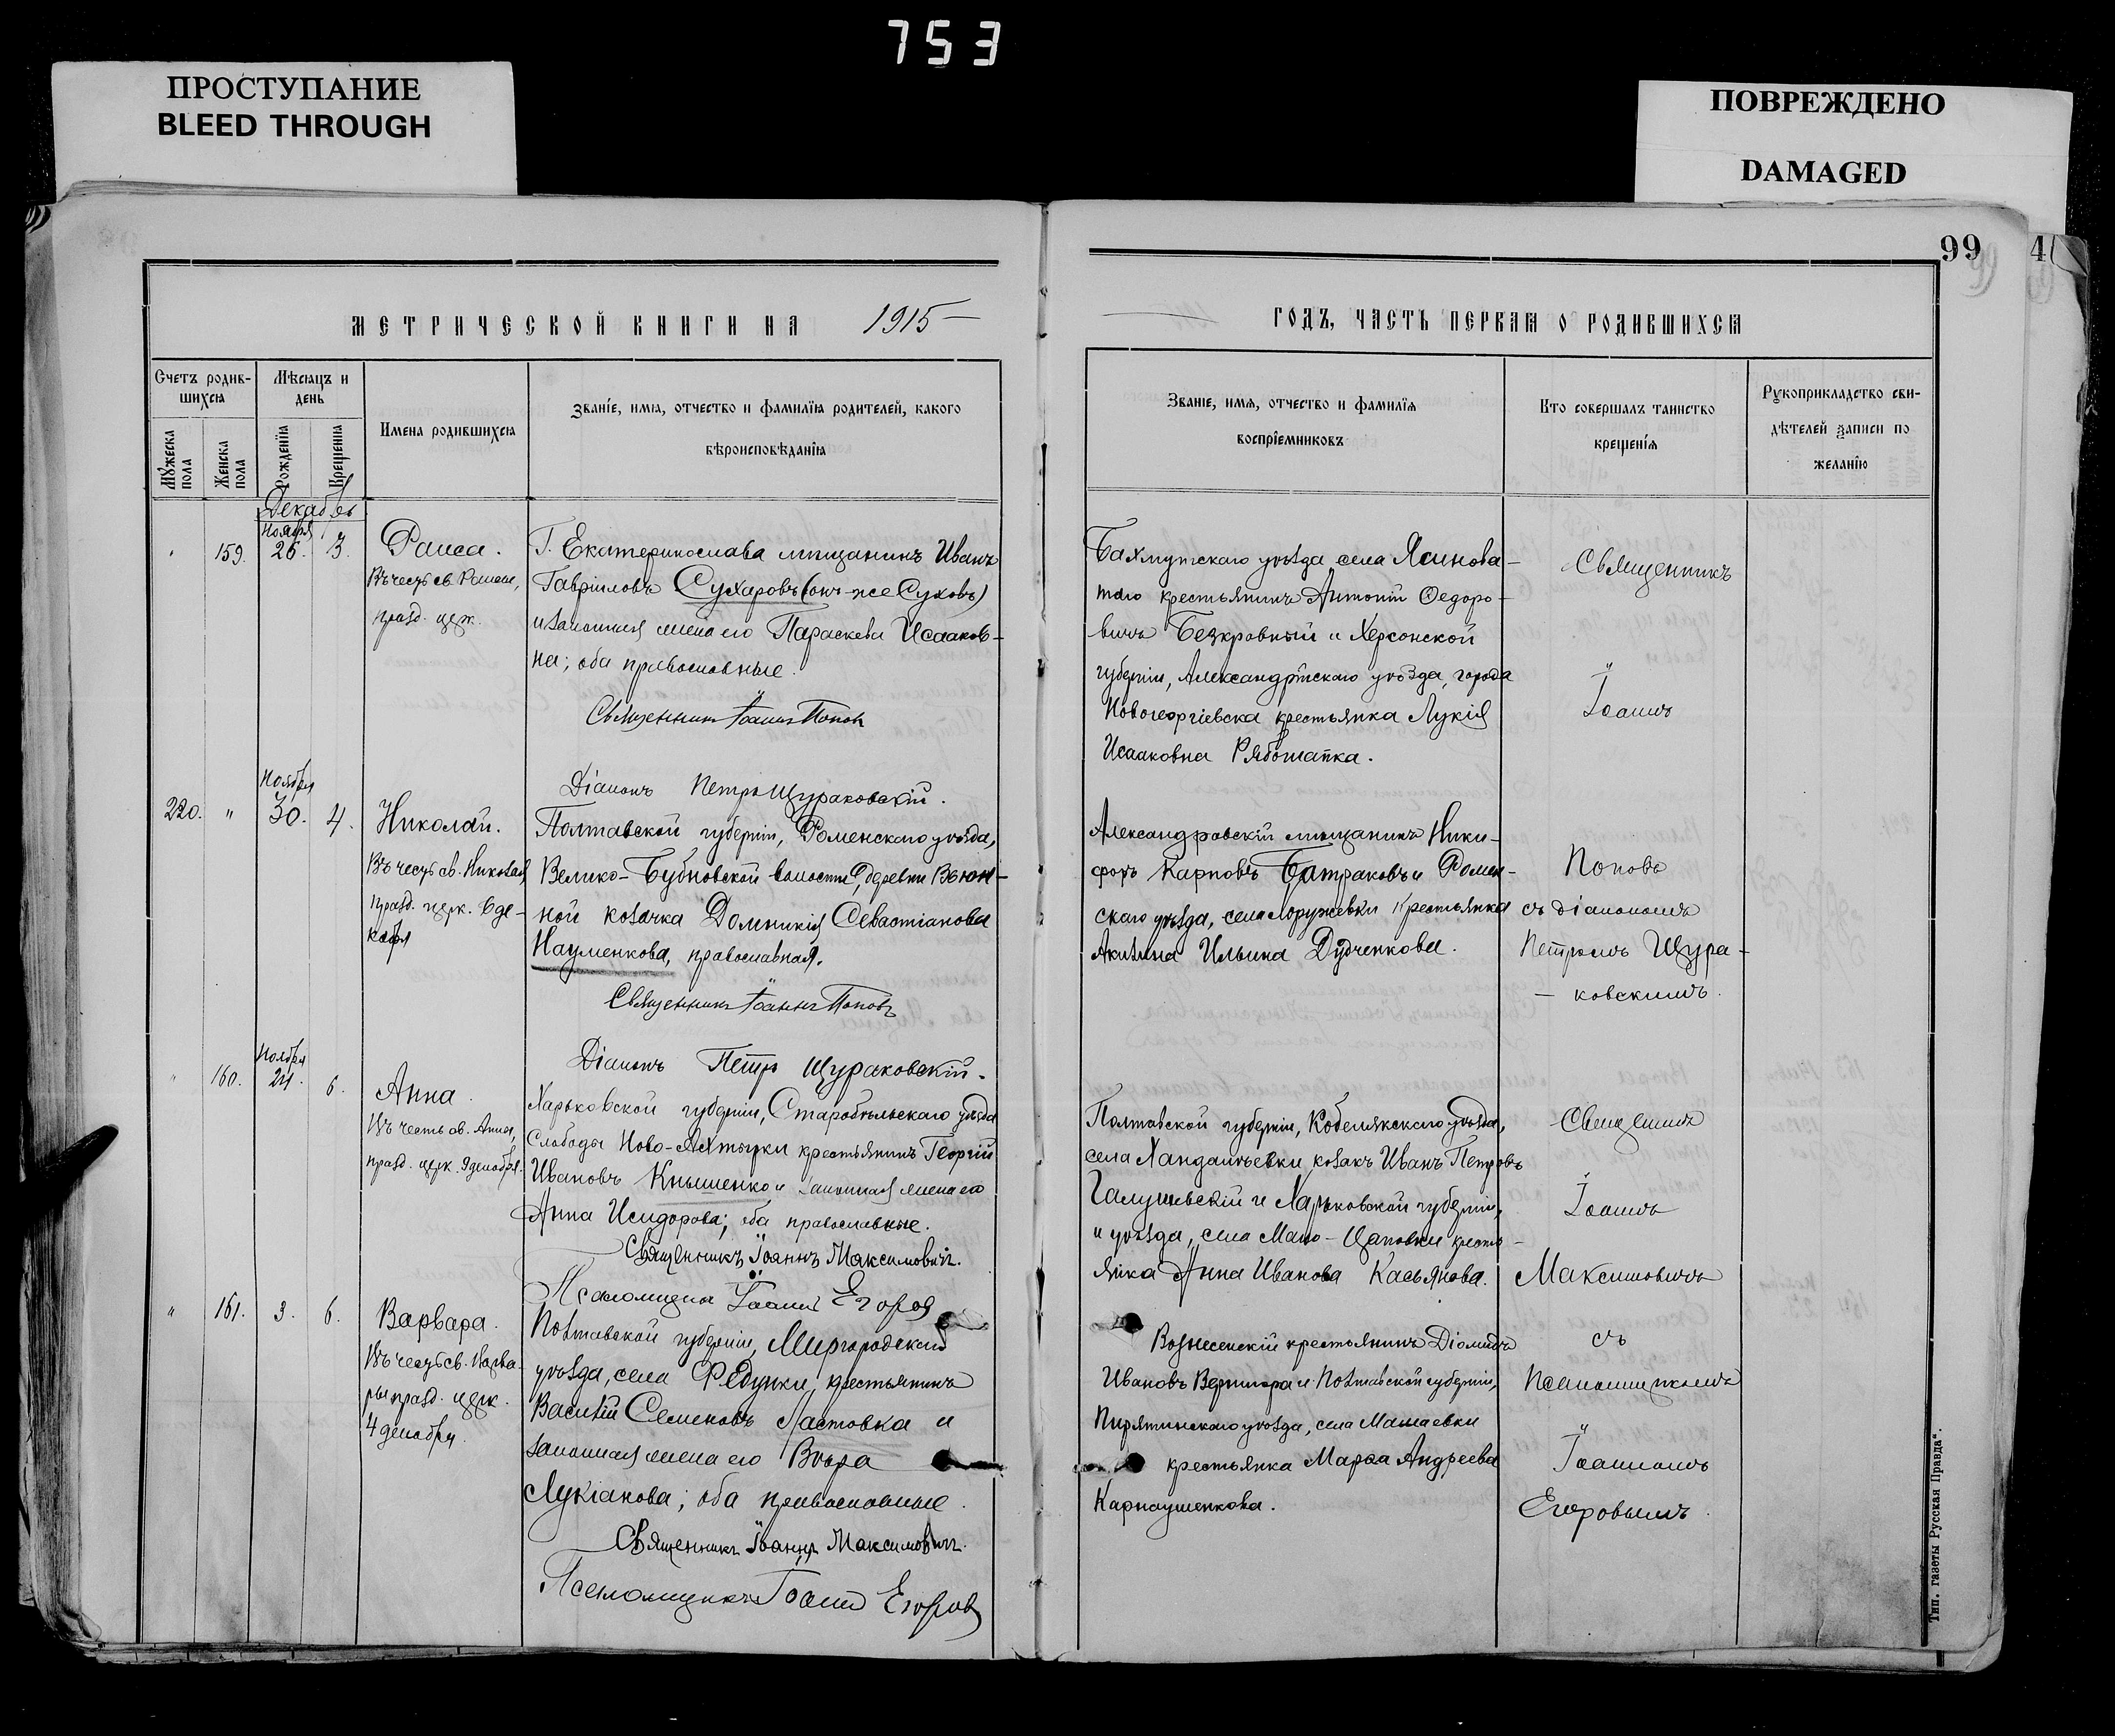 753
ПРОСТУПАНИЕ
BLEED THROUGH
ПОВРЕЖДЕНО
DAMAGED
99
4
МЕТРИЧЕСКОЙ КНИГИ НА 1915
Счетъ родив-
шихся
Мѣсяцъ и
день
Мужеска
пола
Женска
пола
Рожденїя
Крещенїя
Имена родившихся
Званїе, имя, отчество и фамилїя родителей, какого
вѣроисповѣданїя
Декабрь
159.
Ноября
26.
3.
Раиса.
Въ честь св. Раисы,
празд. церк.
Г. Екатеринослава мѣщанинъ Иванъ
Гавріиловъ Сухаровъ (онъ-же Суховъ)
и законная жена его Параскева Исааков-
на; оба православные.
Священникъ Іоаннъ Поповъ
Діаконъ Петръ Щураковскій.
220.
"
Ноября
30.
4.
Николай.
Въ честь св. Николая,
празд. церк. 6 де-
кабря
Полтавской губерніи, Роменскаго уѣзда,
Велико-Бубновской волости, деревни Вьюн-
ной козачка Домникія Севастіанова
Науменкова, православная.
Священникъ Іоаннъ Поповъ
Діаконъ Петръ Щураковскій.
"
160.
Ноября
24.
6.
Анна.
Въ честь св. Анны,
празд. церк. 9 декабря.
Харьковской губерніи, Старобѣльскаго уѣзда
Слободы Ново-Ахтырки крестьянинъ Георгій
Ивановъ Кнышенко и законная жена его
Анна Исидорова; оба православные.
Священникъ Іоаннъ Максимовичъ.
Псаломщикъ Іоаннъ Егоровъ
"
161.
3.
6.
Варвара.
Въ честь св. Варва-
ры празд. церк.
4 декабря.
Полтавской губерніи, Миргородскаго
уѣзда, села Федунки, крестьянинъ
Василій Семеновъ Ластовка и
законная жена его Вѣра
Лукіанова; оба православные.
Священникъ Іоаннъ Максимовичъ.
Псаломщикъ Іоаннъ Егоровъ
ГОДЪ, ЧАСТЬ ПЕРВАЯ О РОДИВШИХСЯ
Званїе, имя, отчество и фамилїя
воспрїемниковъ
Кто совершалъ таинство
крещенїя
Рукоприкладство сви-
дѣтелей записи по
желанїю
Бахмутскаго уѣзда, села Ясинова-
таго крестьянинъ Антоній Ѳедоро-
вичъ Безкровный и Херсонской
губерніи, Александрійскаго уѣзда, города
Новогеоргіевска крестьянка Лукія
Исааковна Рябошапка.
Александровскій мѣщанинъ Ники-
форъ Карповъ Батраковъ и Ромен-
скаго уѣзда, села Коружевки крестьянка
Акилина Ильина Дудченкова.
Полтавской губерніи, Кобелякскаго уѣзда,
села Хандалѣевки, козакъ Иванъ Петровъ
Галушевскій и Харьковской губерніи,
и уѣзда, села Мало-Цаповки кресть-
янка Анна Иванова Касьянова.
Вознесенскій крестьянинъ Діомидъ
Ивановъ Вернигора и Полтавской губерніи,
Пирятинскаго уѣзда, села Малаевки
крестьянка Марѳа Андреева
Карнаушенкова.
Священникъ
Іоаннъ
Поповъ
съ діакономъ
Петромъ Щура-
ковскимъ.
Священникъ
Іоаннъ
Максимовичъ
съ
Псаломщикомъ
Іоанномъ
Егоровымъ.
Тип. газеты Русская Правда".